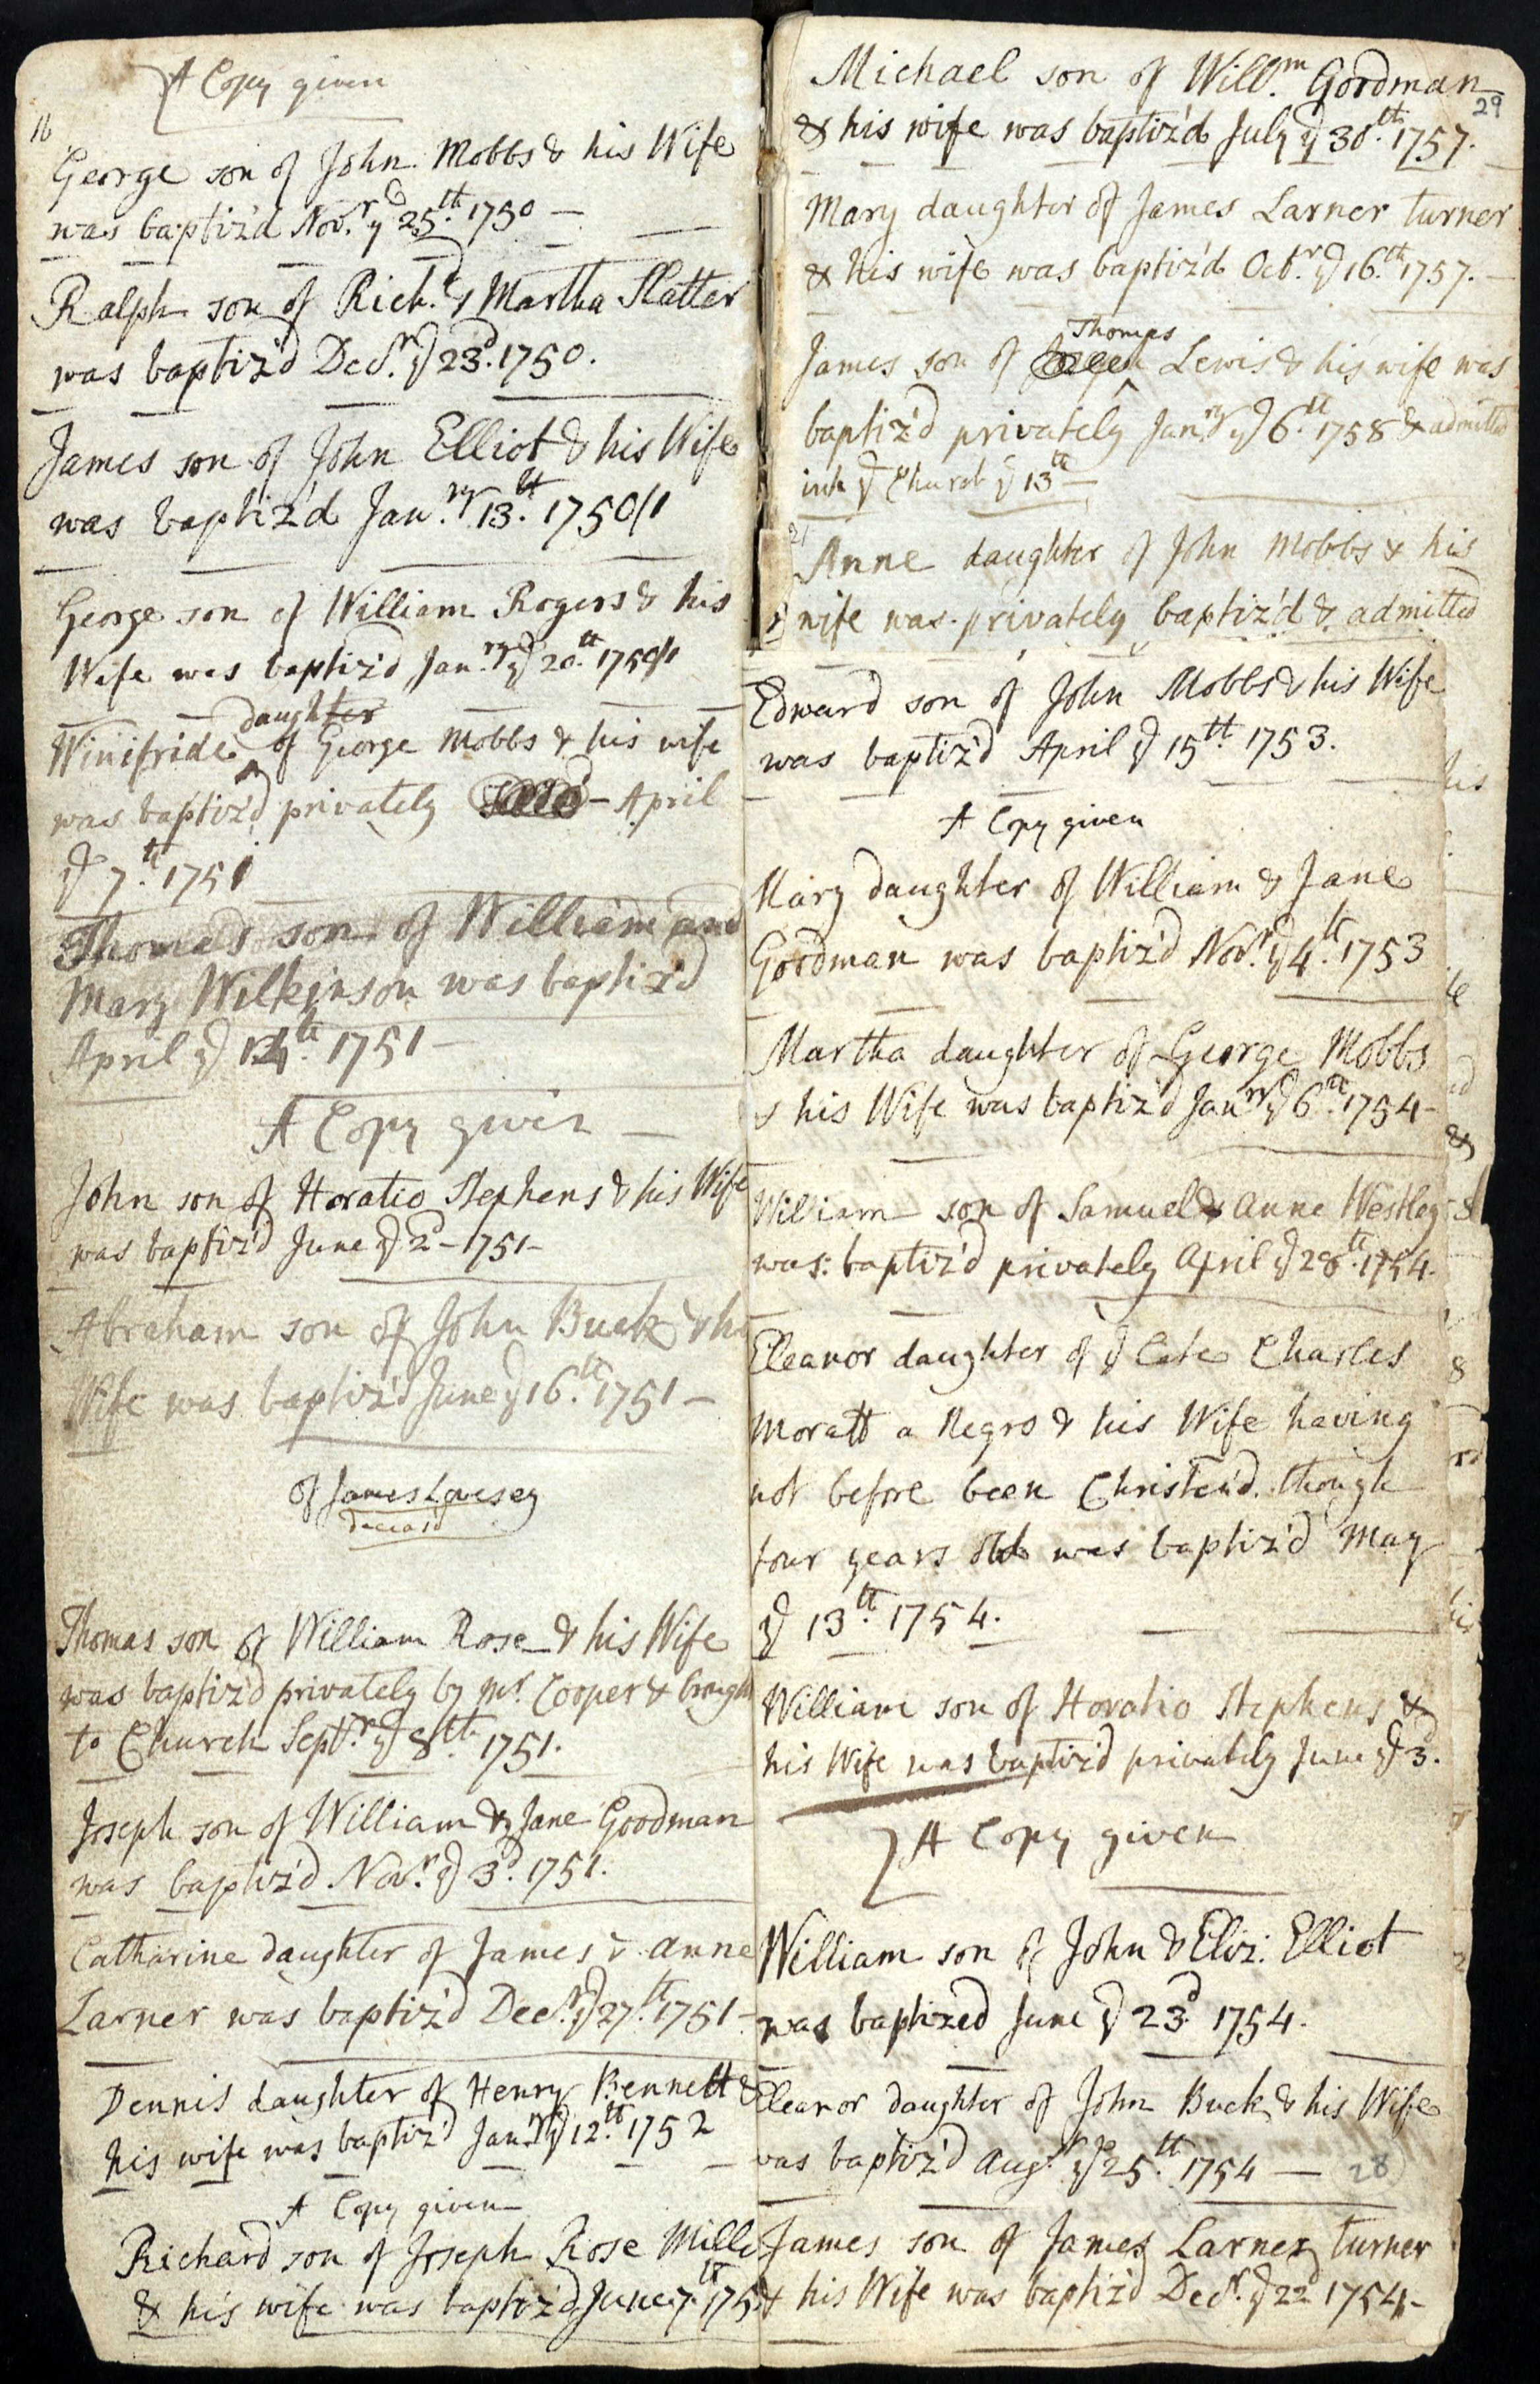 A Copy given
16
George son of John Mobbs & his Wife
was baptiz'd Nov.r ye 25.th 1750 —
Ralph son of Rich.d & Martha Slatter
was baptiz'd Dec.r ye 23.d 1750.
James son of John Elliot & his Wife
was baptiz'd Jan.ry 13.th 1750/1
George son of William Rogers & his
Wife was baptiz'd Jan.ry ye 20.th 1750/1
daughter
Winifride ^ of George Mobbs & his wife
was baptiz'd privately — April
ye 7.th 1751
Thomas son of William and
Mary Wilkinson was baptiz'd
April ye 14.th 1751 —
A Copy given —
John son of Horatio Stephens & his Wife
was baptiz'd June ye 2d — 1751 —
Abraham son of John Buck & hi
Wife was baptiz'd June ye 16.th 1751 —
of James Lovesey
deceas'd
Thomas son of William Rose & his Wife
was baptiz'd privately by Mr. Cooper & brough
to Church Sept.r ye 8.th 1751.
Joseph son of William & Jane Goodman
was baptiz'd Nov.r ye 3.d 1751.
Catharine daughter of James & Anne
Larner was baptiz'd Dec.r ye 27.th 1751 —
Dennis daughter of Henry Bennett &
his wife was baptiz'd Jan.ry ye 12.th 1752
A Copy given
Richard son of Joseph Rose Mille
& his wife was baptiz'd June 7.th 175
Michael son of Will.m Goodman
29
& his wife was baptiz'd July ye 30.th 1757.
Mary daughter of James Larner turner
& his wife was baptiz'd Oct.r ye 16.th 1757. —
Thomas
James son of ^ Lewis & his wife was
baptiz'd privately Jan.ry ye 6.th 1758 & admitted
into ye Church ye 13th —
21
Anne daughter of John Mobbs & his
wife was privately baptiz'd & admitted
Edward son of John Mobbs & his Wife
was baptiz'd April ye 15.th 1753.
A Copy given
Mary daughter of William & Jane
Goodman was baptiz'd Nov.r ye 4.th 1753
Martha daughter of George Mobbs
& his Wife was baptiz'd Jan.ry ye 6.th 1754 —
William son of Samuel & Anne Westley
was baptiz'd privately April ye 28.th 1754.
Eleanor daughter of ye late Charles
Moratt a Negro & his Wife having
not before been Christen'd though
four years old was baptiz'd May
ye 13.th 1754.
William son of Horatio Stephens &
his Wife was baptiz'd privately June ye 3.d
A Copy given
William son of John & Eliz: Elliot
was baptized June ye 23.d 1754.
Eleanor daughter of John Buck & his Wife
was baptiz'd Aug.t ye 25.th 1754 —
28
James son of James Larner turner
& his Wife was baptiz'd Dec.r ye 22d 1754 —